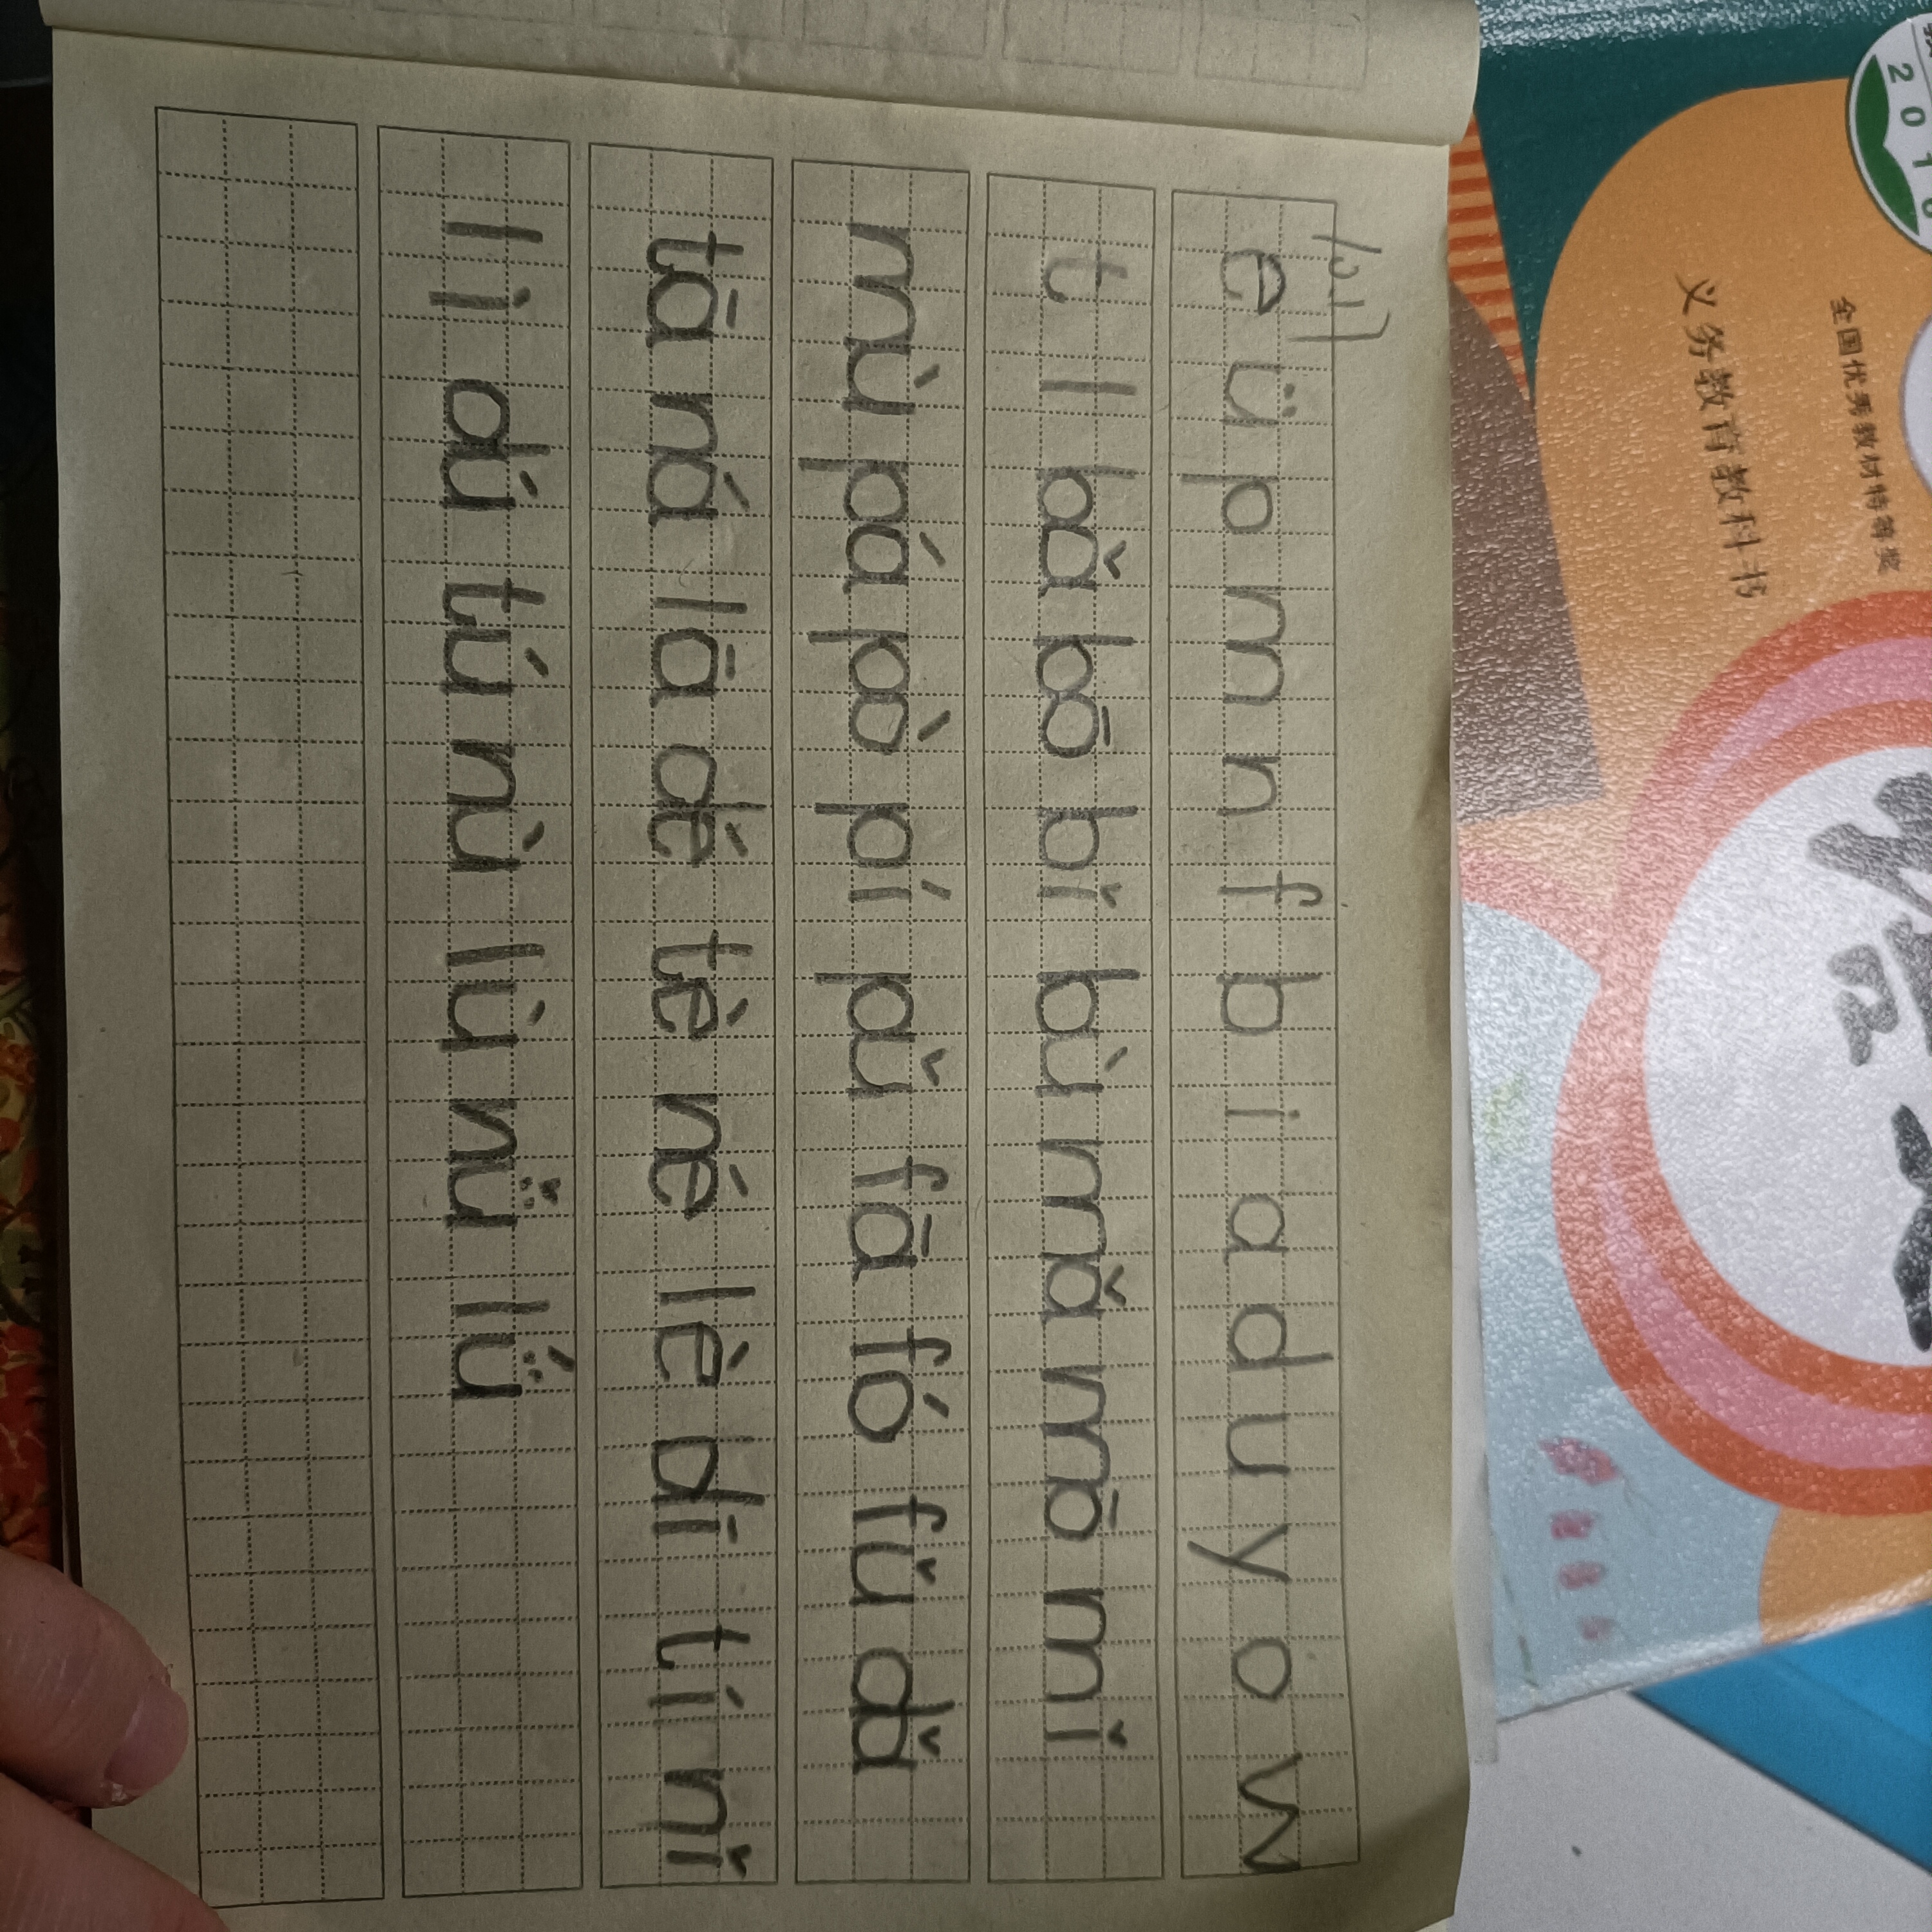 10.11
e ü p m n f b i a d u y o w
t l bǎ bō bǐ bù mǎ mō mǐ
mù pá pò pí pǔ fā fó fǔ dǎ
tā ná lā dé tè né lè dī tí nǐ
lì dú tú nù lù nǚ lǘ
全国优秀教材特等奖
义务教育教科书